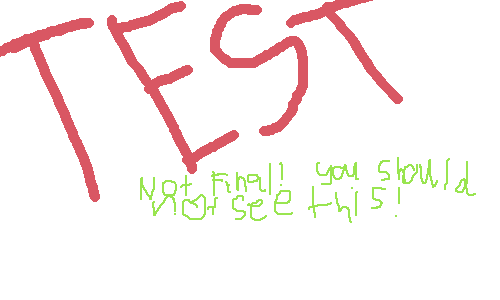 TEST
Not Final! you should
not see this!